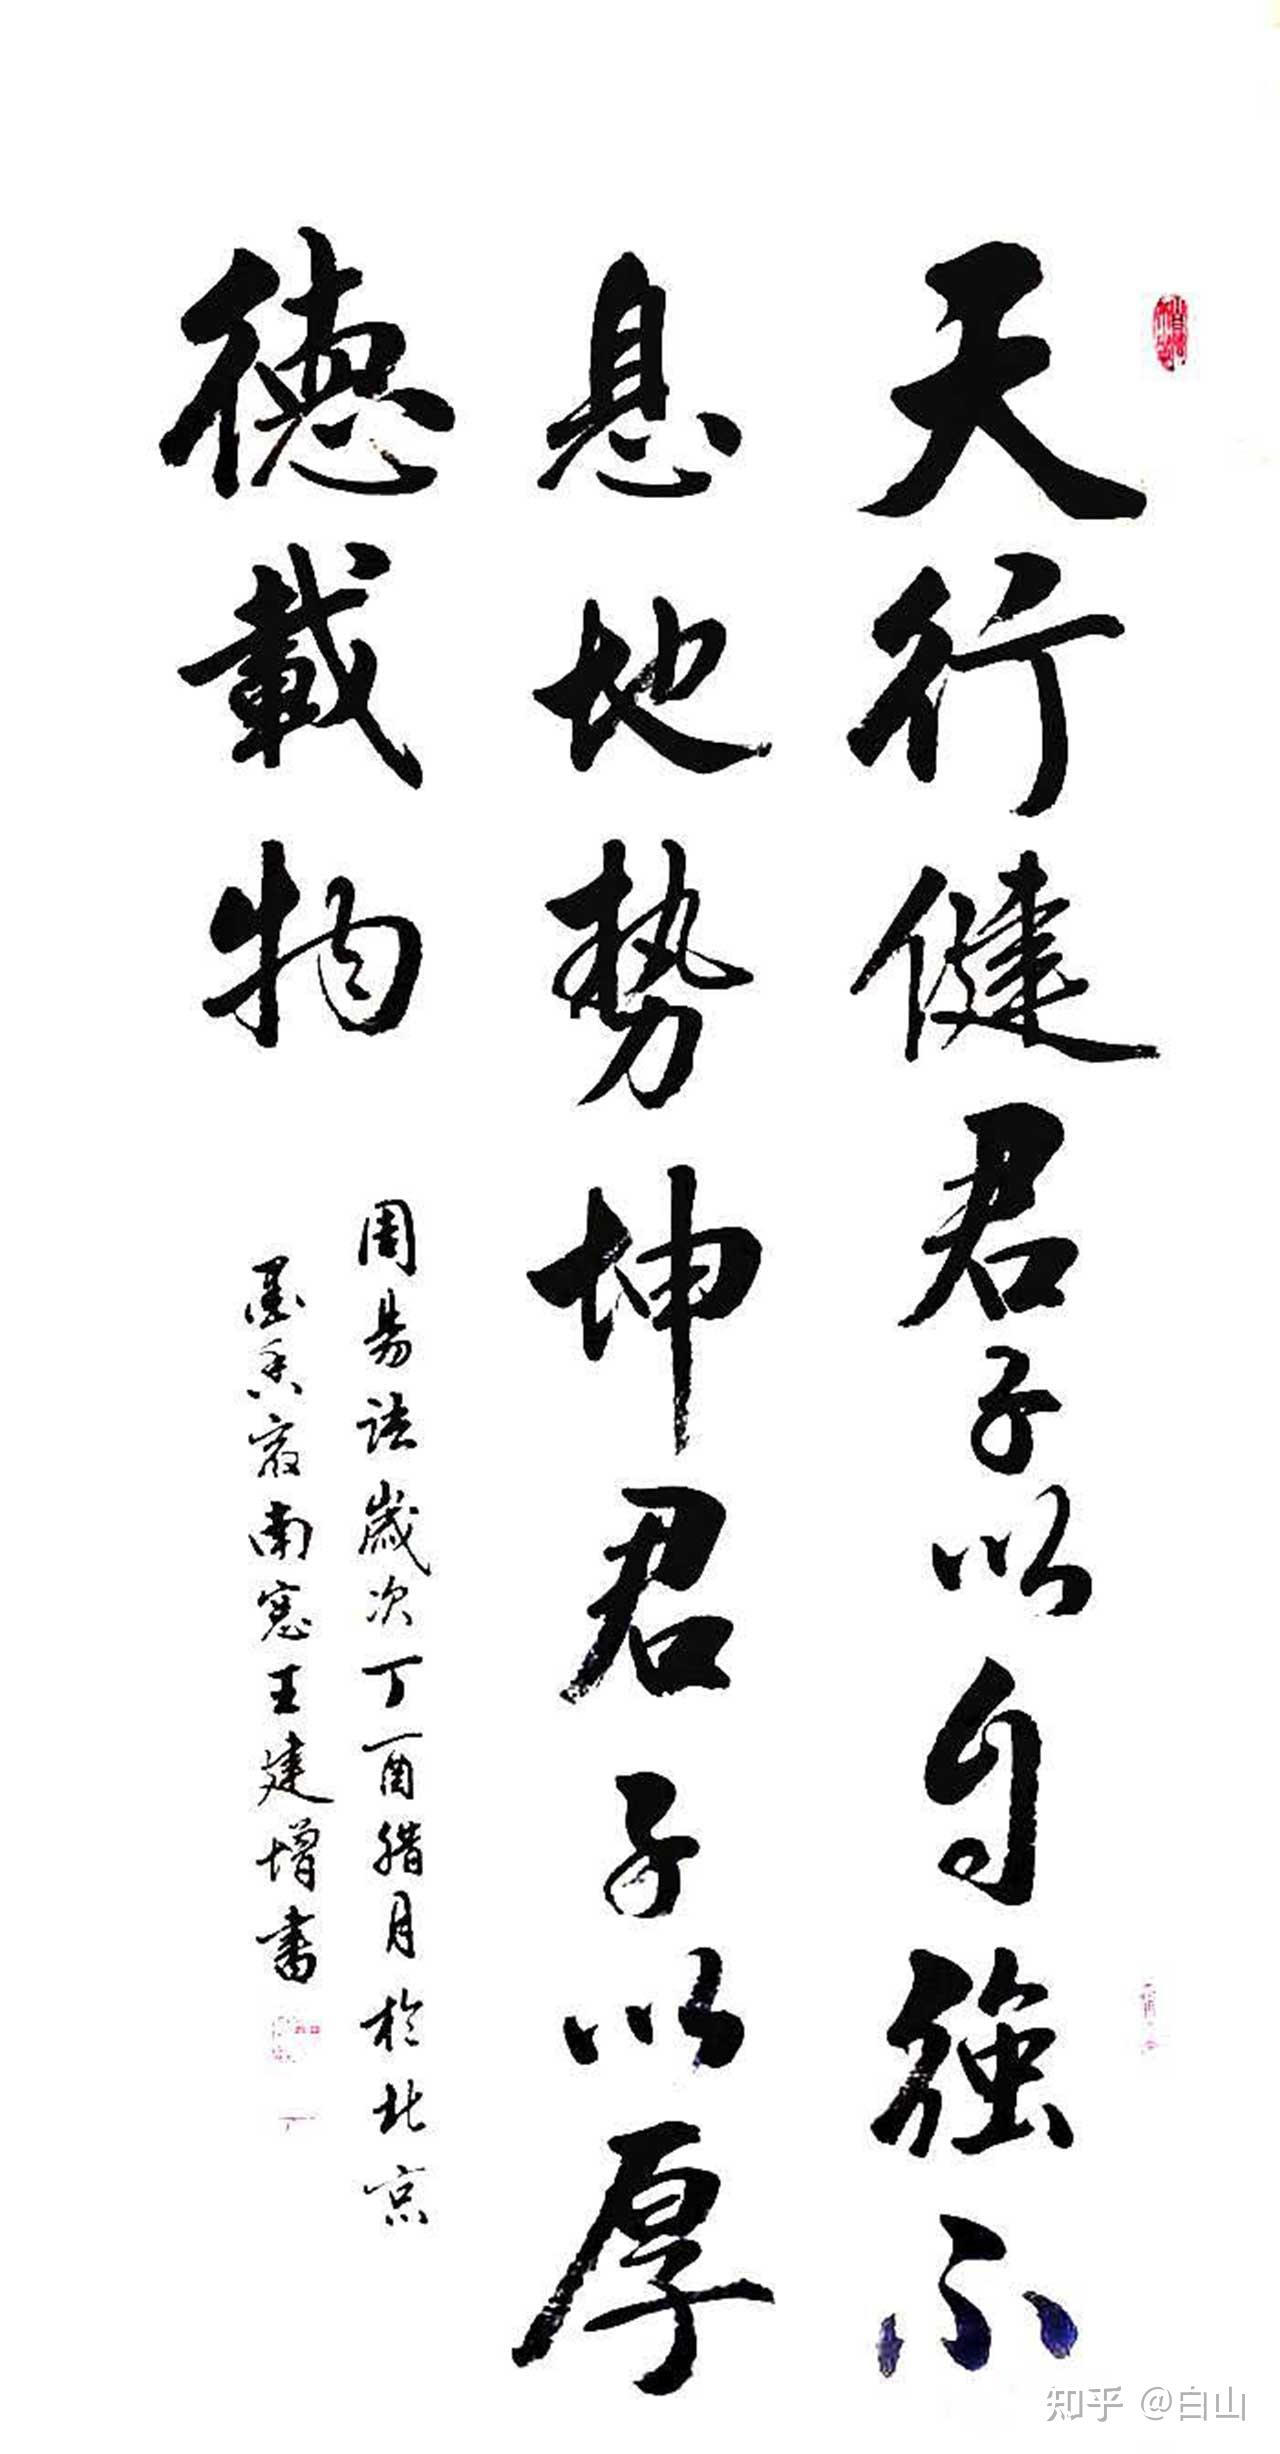 天行健君子以自強不
息地勢坤君子以厚
德載物
周易語歲次丁酉腊月於北京
墨香齋南窓王建增書
知乎 @白山